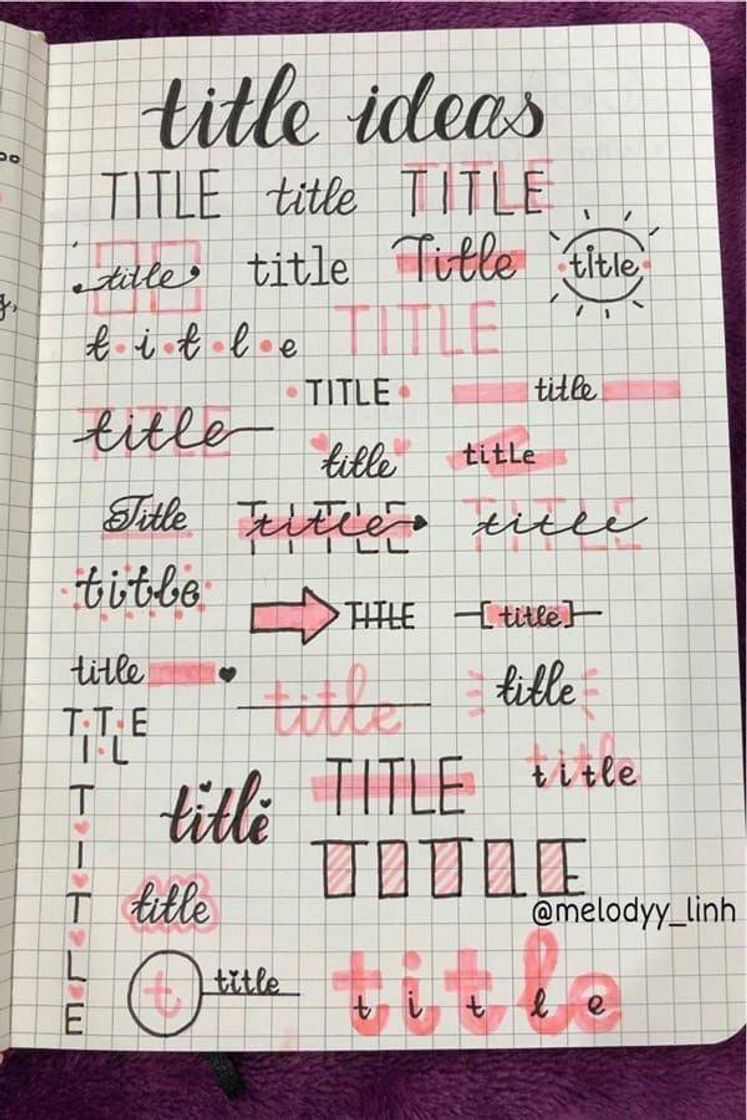 title ideas
TITLE title TITLE
title title Title title
t i t l e TITLE
TITLE title
TITLE title
title title
Title TITLE title TITLE title
title
TITLE [title]
title
title title
TITLE
TITLE title
title
TITLE
TITLE
title
@melodyy_linh
t title title
t i t l e